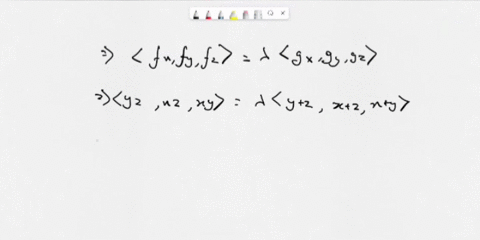 ⇒ < fx, fy, fz > = λ < gx, gy, gz >
⇒ < yz , xz , xy > = λ < y+z , x+z , x+y >